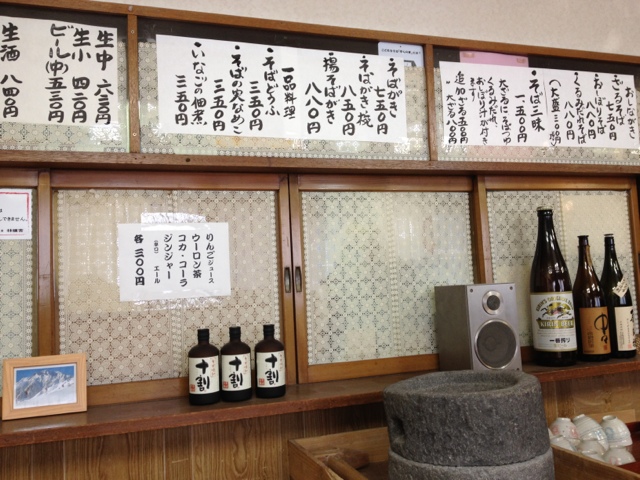 おしながき
ざるそば
七五〇円
おしぼりそば
八八〇円
くるみだれそば
八八〇円
(大盛 三〇〇円)
・そば三昧
一、五五〇円
くるみだれ、
おしぼり汁が付き
ます。
追加ざる五五〇円
大ざる八〇〇円
・そばがき
七五〇円
・そばがき椀
八五〇円
・揚そばがき
八八〇円
一品料理
・そばどうふ
三五〇円
・そばの実なめこ
三五〇円
・いなごの佃煮
三五〇円
生中 六三〇円
生小 四二〇円
ビール(中)五三〇円
生酒 八四〇円
りんごジュース
ウーロン茶
コカ・コーラ
ジンジャー
エール
(辛口)
各 三〇〇円
できません。
十割
十割
十割
KIRIN
一番搾り